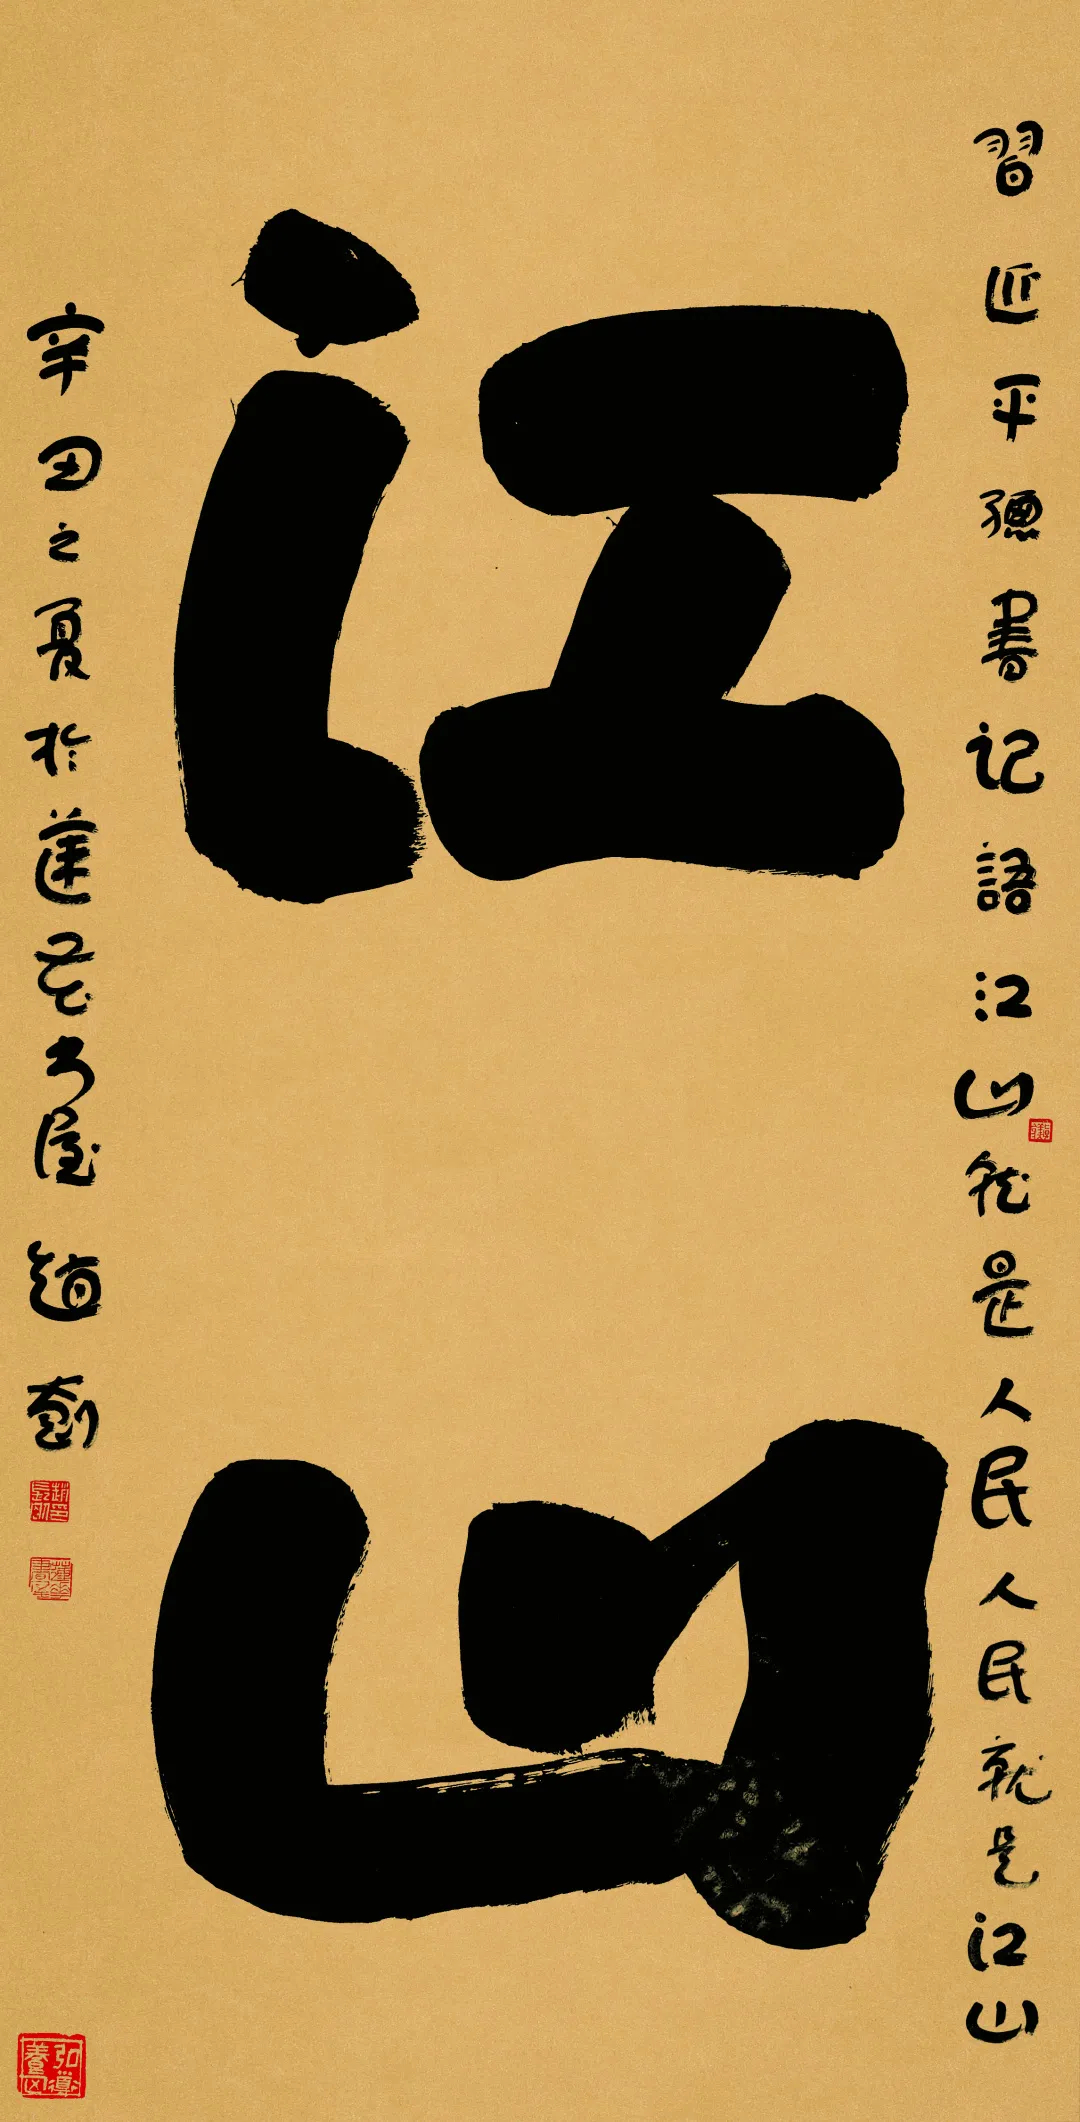 習近平總書记語江山就是人民人民就是江山
江山
辛丑之夏於蓮花书屋 趙